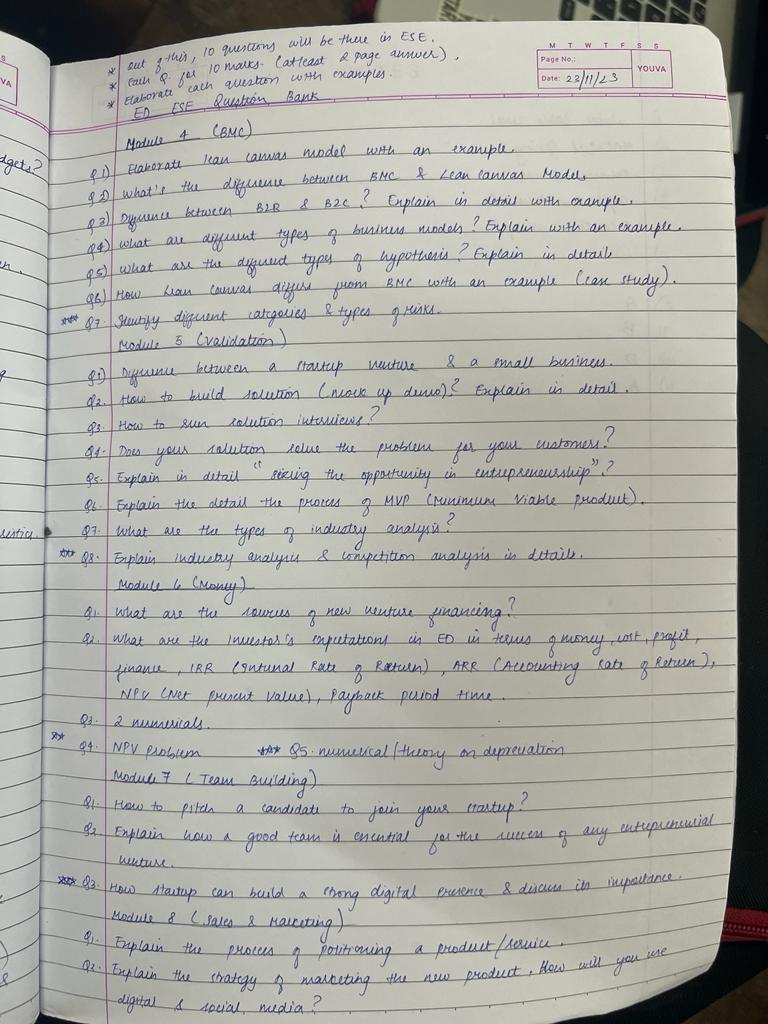 * out of this, 10 questions will be there in ESE.
* each Q. for 10 marks. (atleast 2 page answer).
* Elaborate each question with examples.
M T W T F S S
Page No.:
Date: 23/11/23
YOUVA
ED ESE Question Bank
Module 4 (BMC)
Q1) Elaborate lean canvas model with an example.
Q2) What's the difference between BMC & Lean Canvas Model.
Q3) Difference between B2B & B2C? Explain in detail with example.
Q4) What are different types of business models? Explain with an example.
Q5) What are the different types of hypothesis? Explain in details
Q6) How Lean Canvas differs from BMC with an example (case study).
*** Q7. Identify different categories & types of risks.
Module 5 (Validation)
Q1) Difference between a startup venture & a small business.
Q2. How to build solution (mock up demo)? Explain in detail.
Q3. How to run solution interviews?
Q4. Does your solution solve the problem for your customers?
Q5. Explain in detail "seizing the opportunity in entrepreneurship"?
Q6. Explain the detail the process of MVP (Minimum Viable product).
Q7. What are the types of industry analysis?
*** Q8. Explain industry analysis & competition analysis in details.
Module 6 (Money)
Q1. What are the sources of new venture financing?
Q2. What are the Investor's expectations in ED in terms of money, cost, profit,
finance, IRR (Internal Rate of Return), ARR (Accounting Rate of Return),
NPV (Net present Value), Payback period time.
Q3. 2 numericals.
** Q4. NPV problem *** Q5. numerical/theory on depreciation
Module 7 (Team Building)
Q1. How to pitch a candidate to join your startup?
Q2. Explain how a good team is essential for the success of any entrepreneurial
venture.
*** Q3. How startup can build a strong digital presence & discuss its importance.
Module 8 (Sales & Marketing)
Q1. Explain the process of positioning a product/service.
Q2. Explain the strategy of marketing the new product. How will you use
digital & social media?